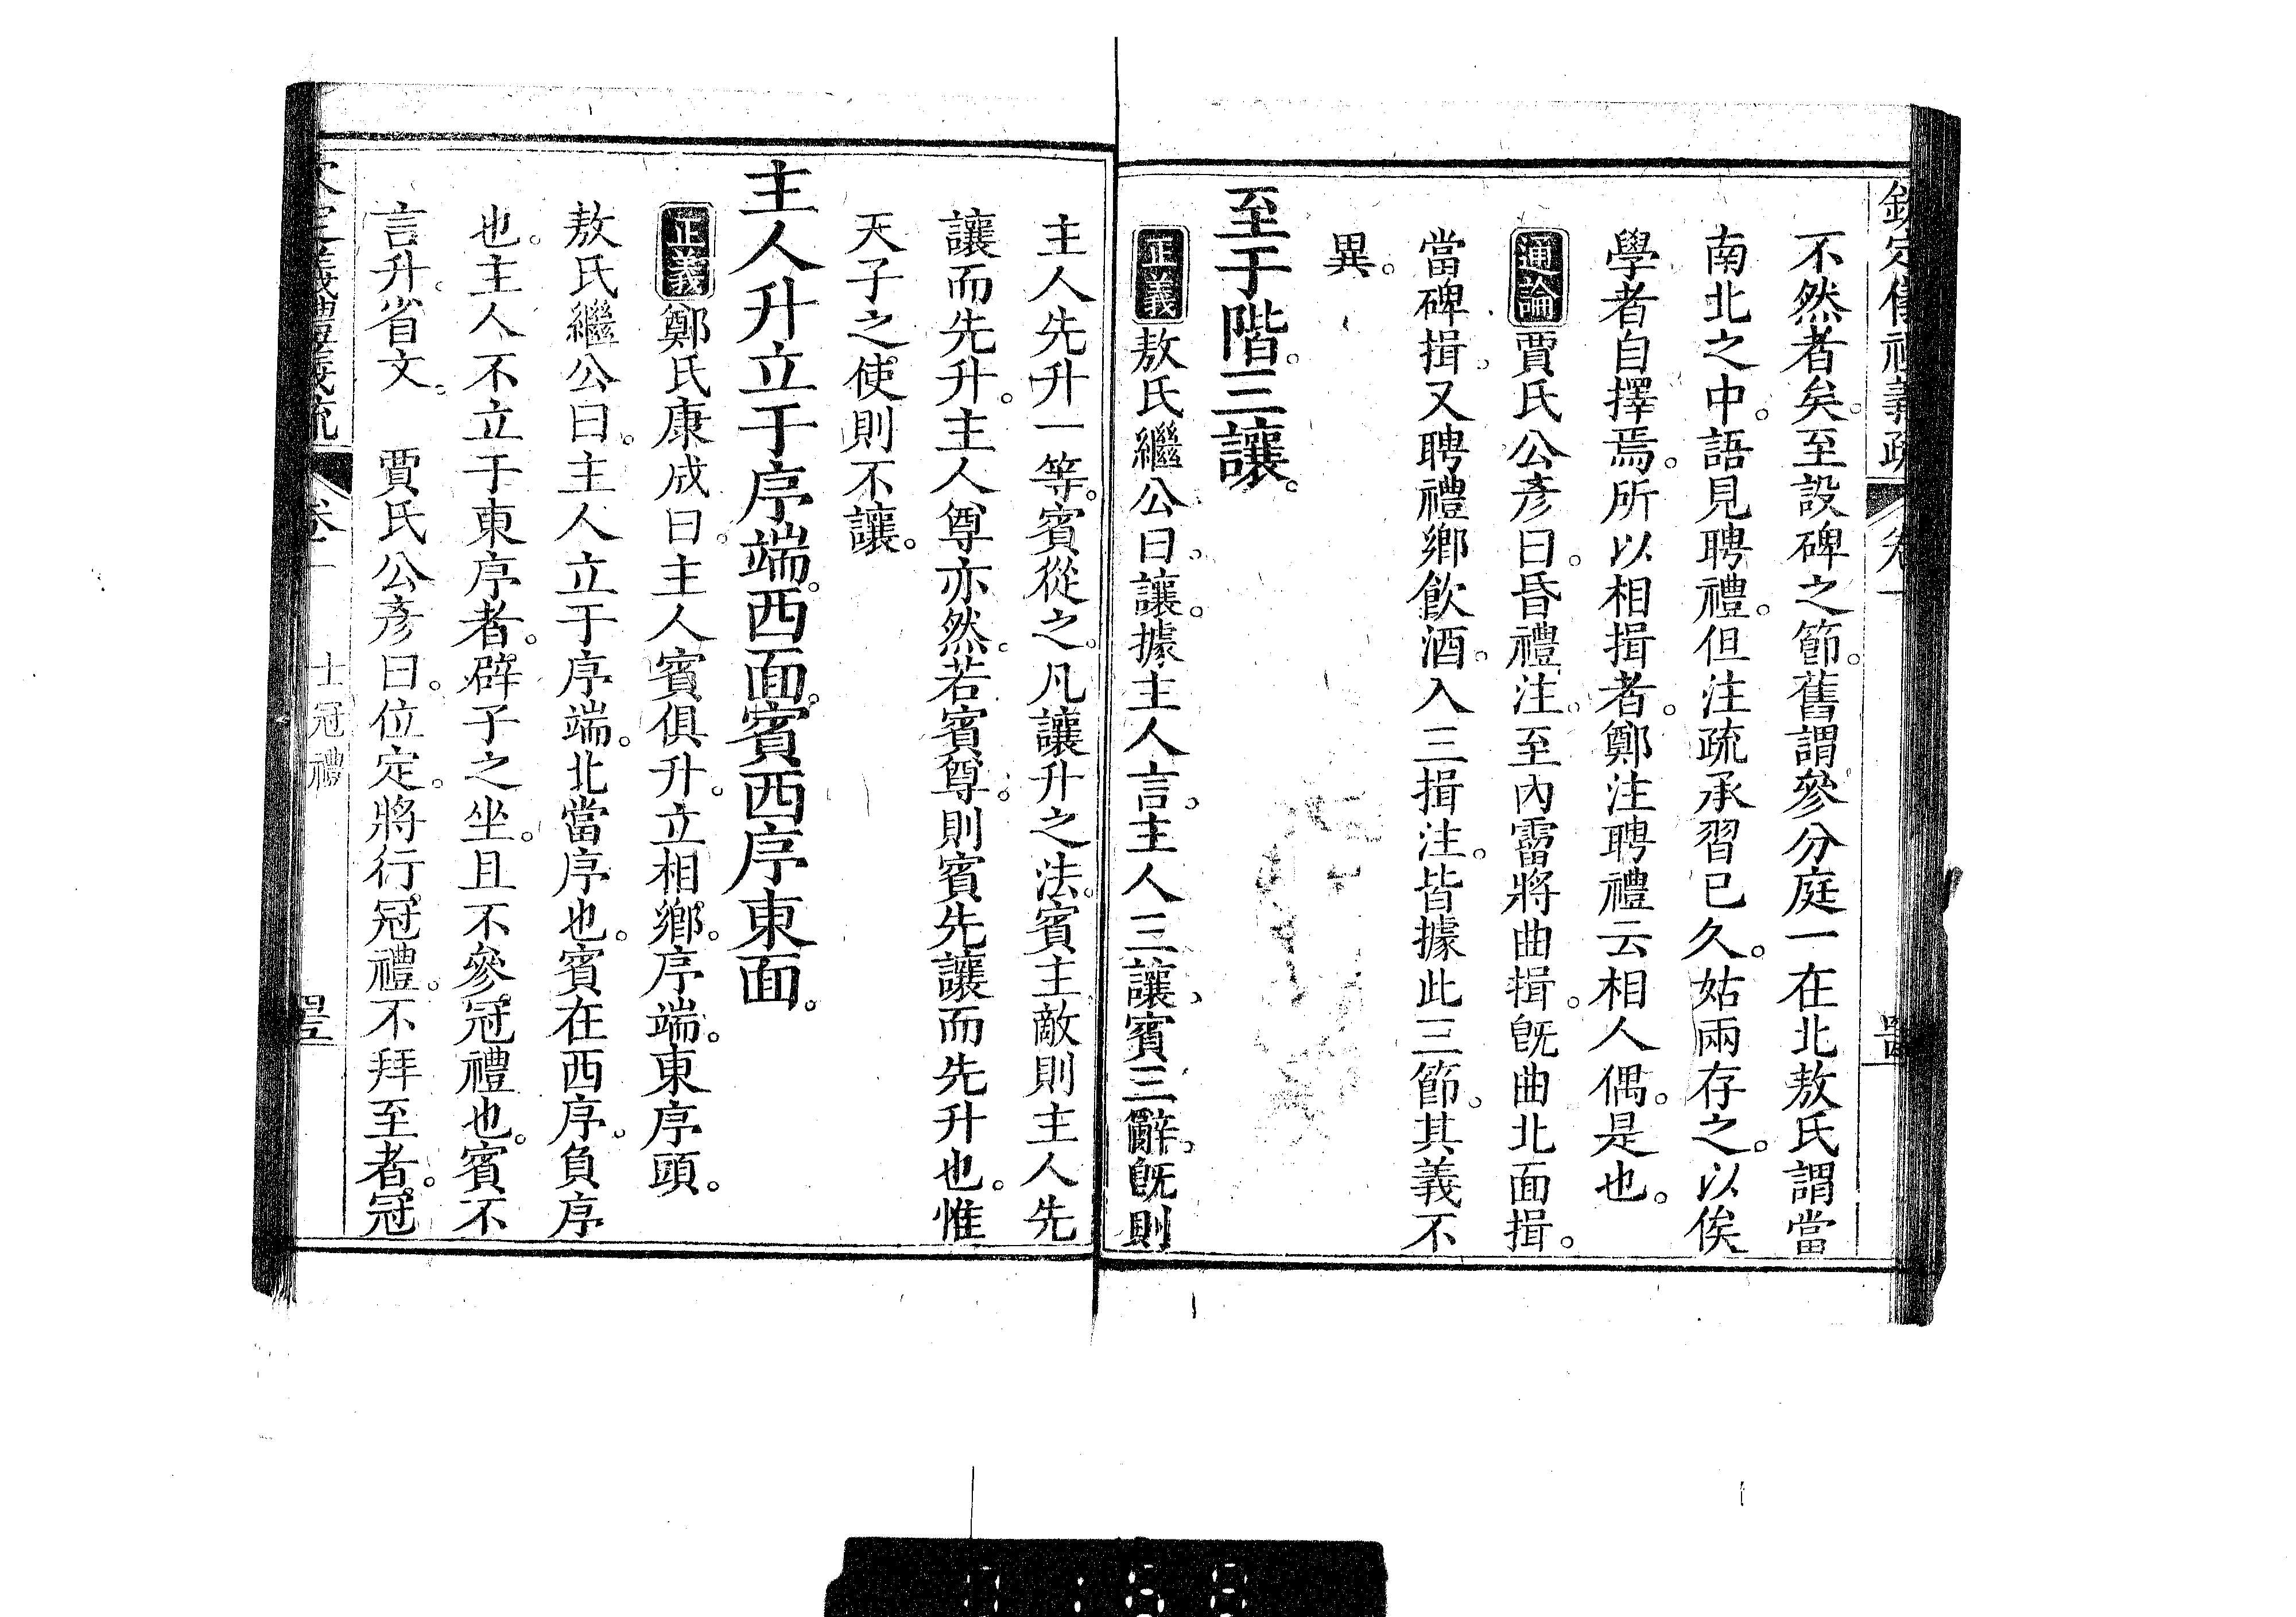 欽定儀禮義疏 卷一
不然者矣。至設碑之節。舊謂參分庭一在北敖氏謂當
南北之中。語見聘禮。但注疏承習已久。姑兩存之。以俟
學者自擇焉。所以相揖者。鄭注聘禮云相人偶。是也。
通論賈氏公彥曰。昏禮注。至內霤將曲揖。旣曲北面揖。
當碑揖。又聘禮鄉飮酒。入三揖注。皆據此三節。其義不
異。
至于階。三讓。
正義敖氏繼公曰。讓。據主人言。主人三讓、賓三辭。旣則
主人先升一等。賓從之。凡讓升之法。賓主敵則主人先
讓而先升。主人尊亦然。若賓尊。則賓先讓而先升也。惟
天子之使則不讓。
主人升立于序端。西面。賓西序東面。
正義鄭氏康成曰。主人賓俱升。立相鄉。序端。東序頭。
敖氏繼公曰。主人立于序端。北當序也。賓在西序。負序
也。主人不立于東序者。辟子之坐。且不參冠禮也。賓不
言升。省文。 賈氏公彥曰。位定。將行冠禮。不拜至者。冠
義禮義疏 卷一 士冠禮